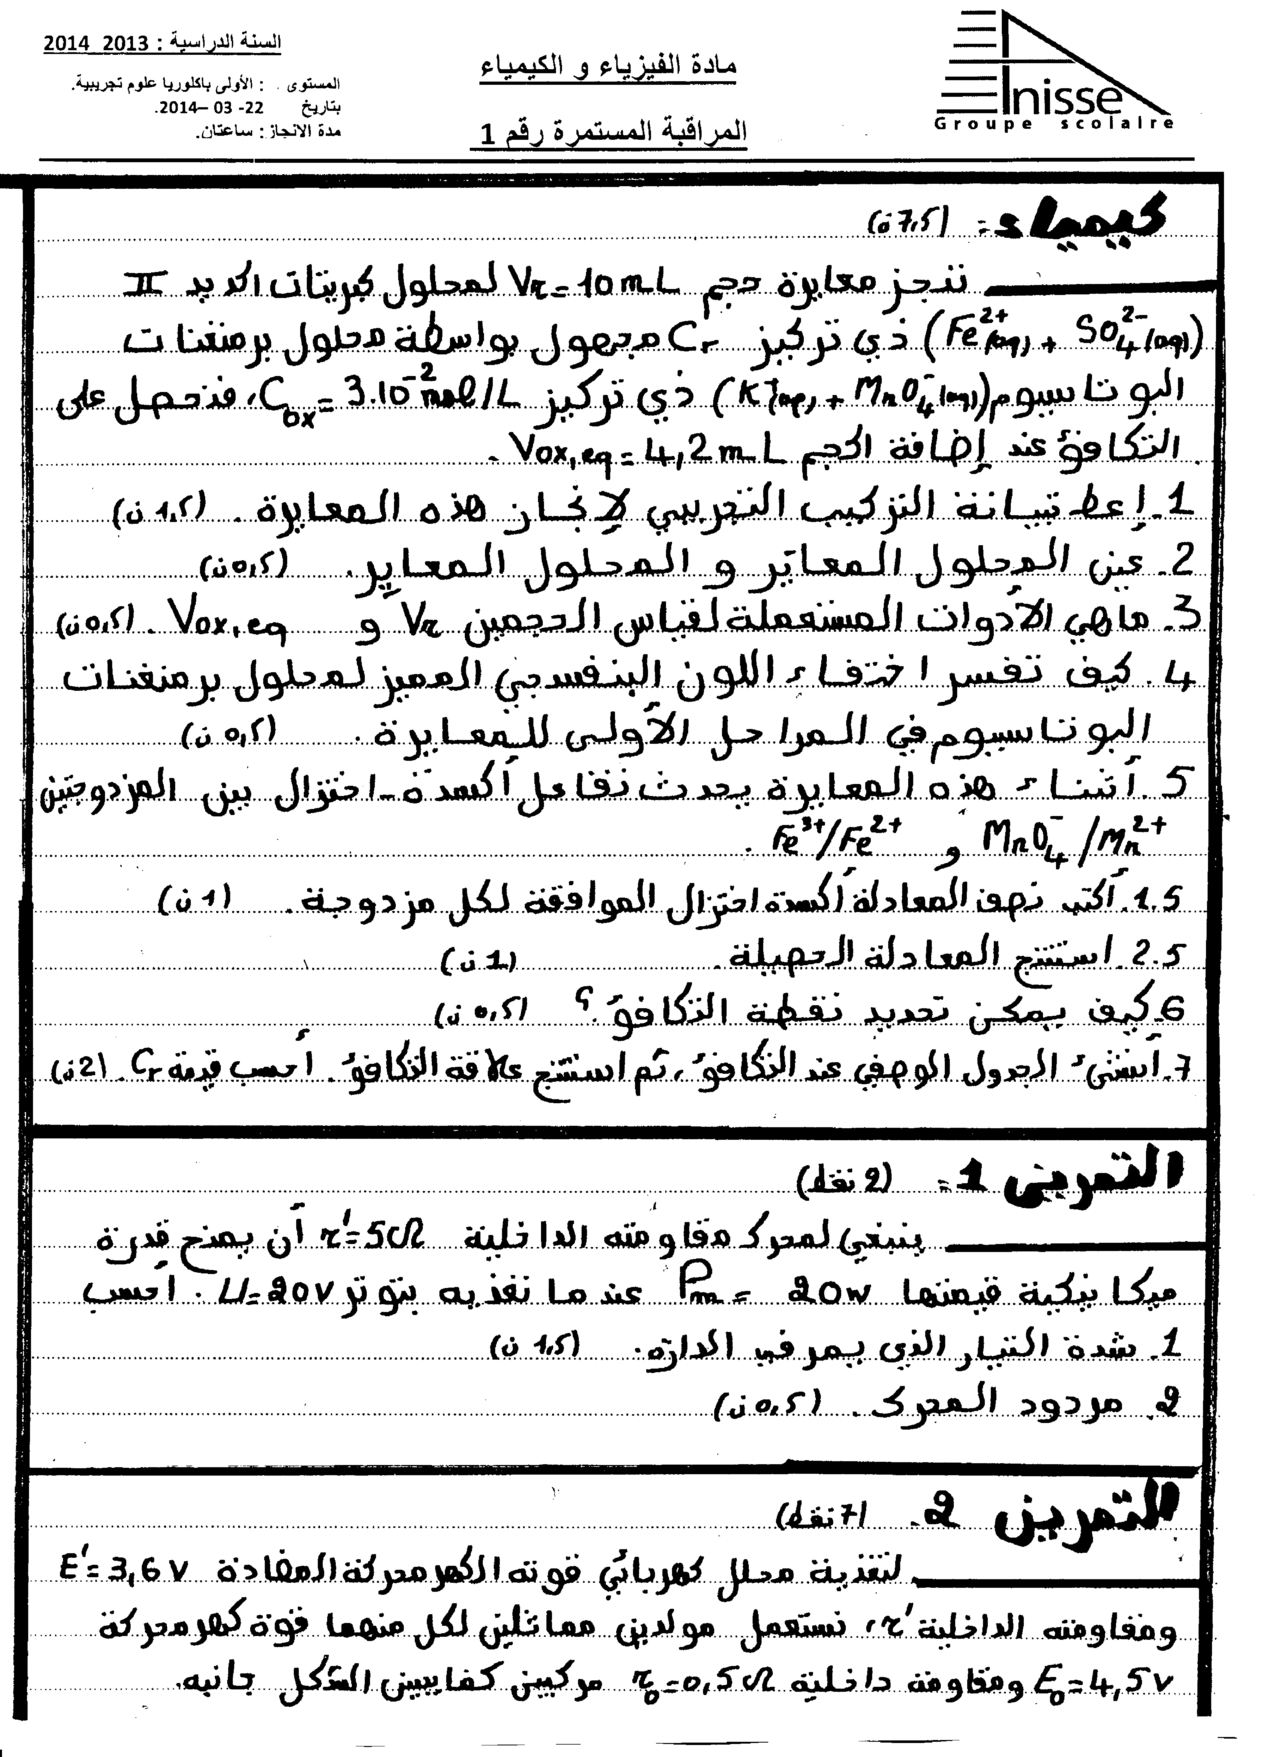 السنة الدراسية : 2013 2014
المستوى : الأولى باكلوريا علوم تجريبية.
بتاريخ 22- 03 –2014.
مدة الانجاز : ساعتان.
مادة الفيزياء و الكيمياء
المراقبة المستمرة رقم 1
Anisse
Groupe scolaire
كيمياء = (7,5ن)
ننجز معايرة حجم Vr = 10 mL لمحلول كبريتات الحديد II
(Fe²⁺(aq) + SO₄²⁻(aq)) ذي تركيز Cr مجهول بواسطة محلول برمنغنات
البوتاسيوم (K⁺(aq) + MnO₄⁻(aq)) ذي تركيز Cox = 3.10⁻² mol/L، فنحصل على
التكافؤ عند إضافة الحجم Vox,eq = 4,2 mL.
1. إعط تبيانة التركيب التجريبي لإنجاز هذه المعايرة. (1,5ن)
2. عين المحلول المعايَر و المحلول المعايِر. (0,5ن)
3. ماهي الأدوات المستعملة لقياس الحجمين Vr و Vox,eq. (0,5ن)
4. كيف تفسر اختفاء اللون البنفسجي المميز لمحلول برمنغنات
البوتاسيوم في المراحل الأولى للمعايرة. (0,5ن)
5. أثناء هذه المعايرة يحدث تفاعل أكسدة-اختزال بين المزدوجتين
MnO₄⁻/Mn²⁺ و Fe³⁺/Fe²⁺.
1.5. أكتب نصف المعادلة أكسدة اختزال الموافقة لكل مزدوجة. (1ن)
2.5. استنتج المعادلة الحصيلة. (1ن)
6. كيف يمكن تحديد نقطة التكافؤ؟ (0,5ن)
7. أنشئ الجدول الوصفي عند التكافؤ، ثم استنتج علاقة التكافؤ. أحسب قيمة Cr. (2ن)
التمرين 1 = (2 نقط)
ينبغي لمحرك مقاومته الداخلية r'=5Ω أن يمنح قدرة
ميكانيكية قيمتها Pm = 20w عندما نغذيه بتوتر U=20V. أحسب
1. شدة التيار الذي يمر في الدارة. (1,5ن)
2. مردود المحرك. (0,5ن)
التمرين 2. (7نقط)
لتغذية محلل كهربائي قوته الكهرمحركة المضادة E'=3,6V
ومقاومته الداخلية r'، نستعمل مولدين مماثلين لكل منهما قوة كهرمحركة
E₀=4,5V ومقاومة داخلية r₀=0,5Ω مركبين كما يبين الشكل جانبه.